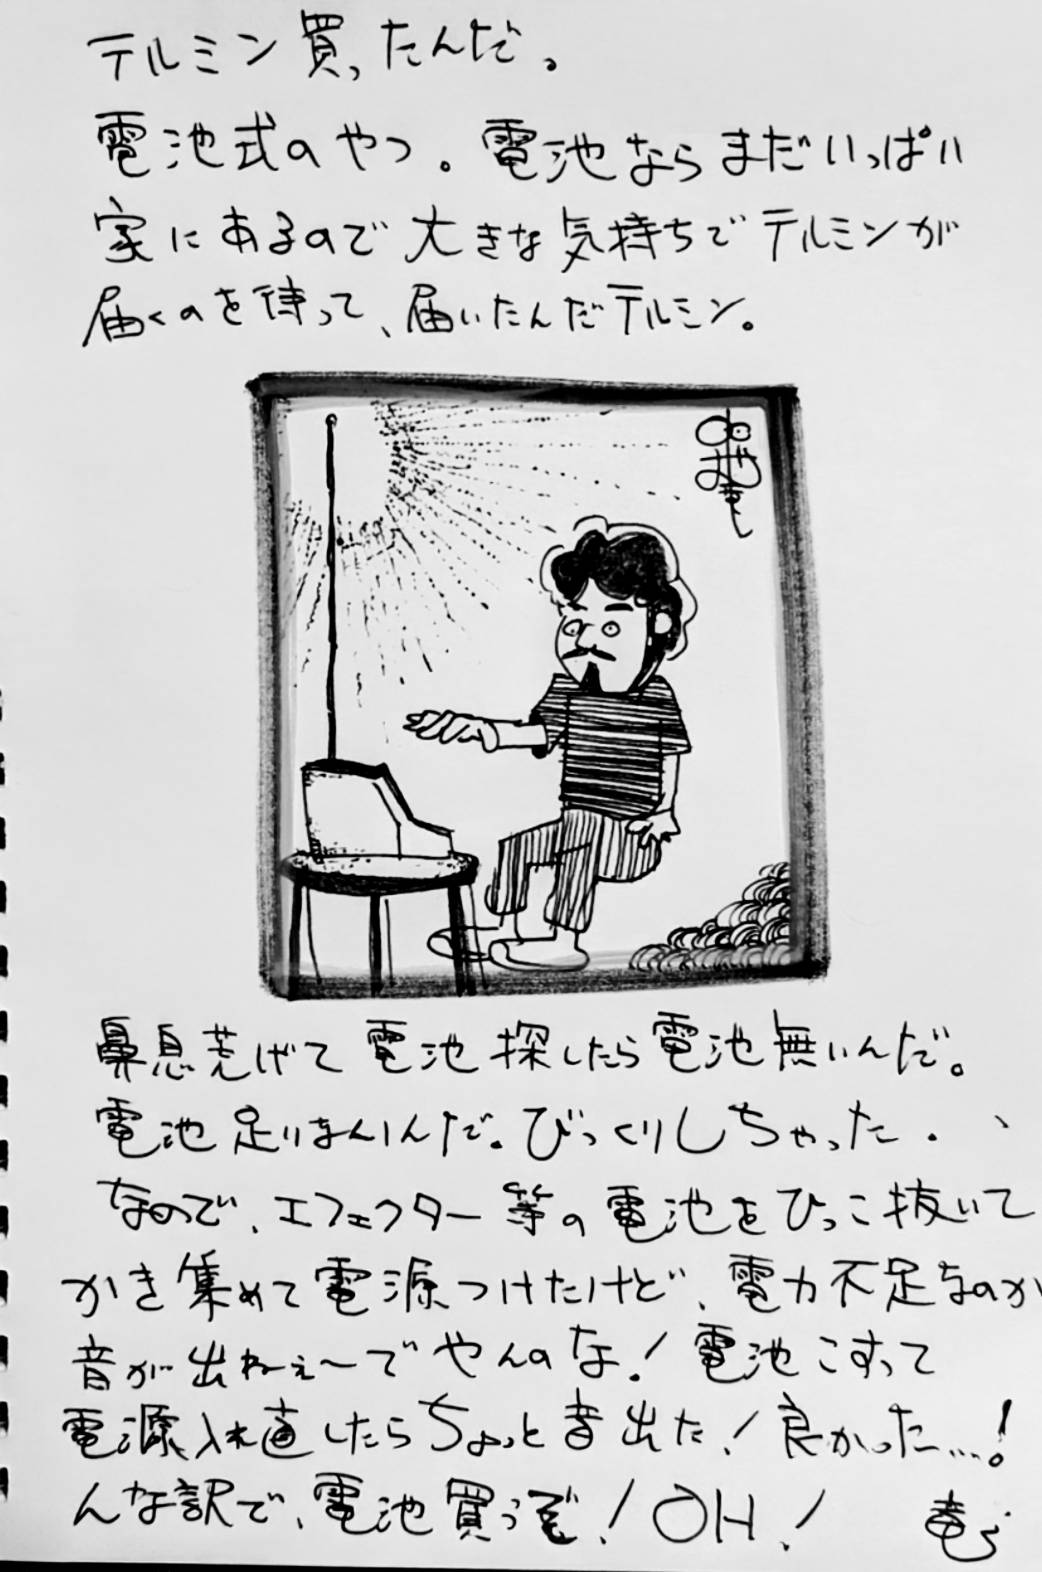 テルミン買ったんだ。
電池式のやつ。電池ならまだいっぱい
家にあるので大きな気持ちでテルミンが
届くのを待って、届いたんだテルミン。
鼻息荒げて電池探したら電池無いんだ。
電池足りまんんだ。びっくりしちゃった.
なので、エフェクター等の電池をひっこ抜いて
かき集めて電源つけたけど、電力不足なのか
音が出ねぇ〜でやんのな!電池こすって
電源入れ直したらちょっと音出た!良かった…!
んな訳で、電池買うぞ!OH!